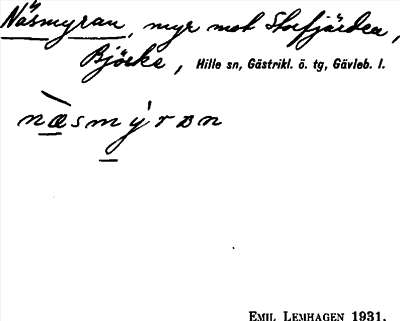 Näsmyran, myr mot Storfjärden,
Björke, Hille sn, Gästrikl. ö. tg, Gävleb. l.
næ̀smýrɒn
EMIL LEMHAGEN 1931.